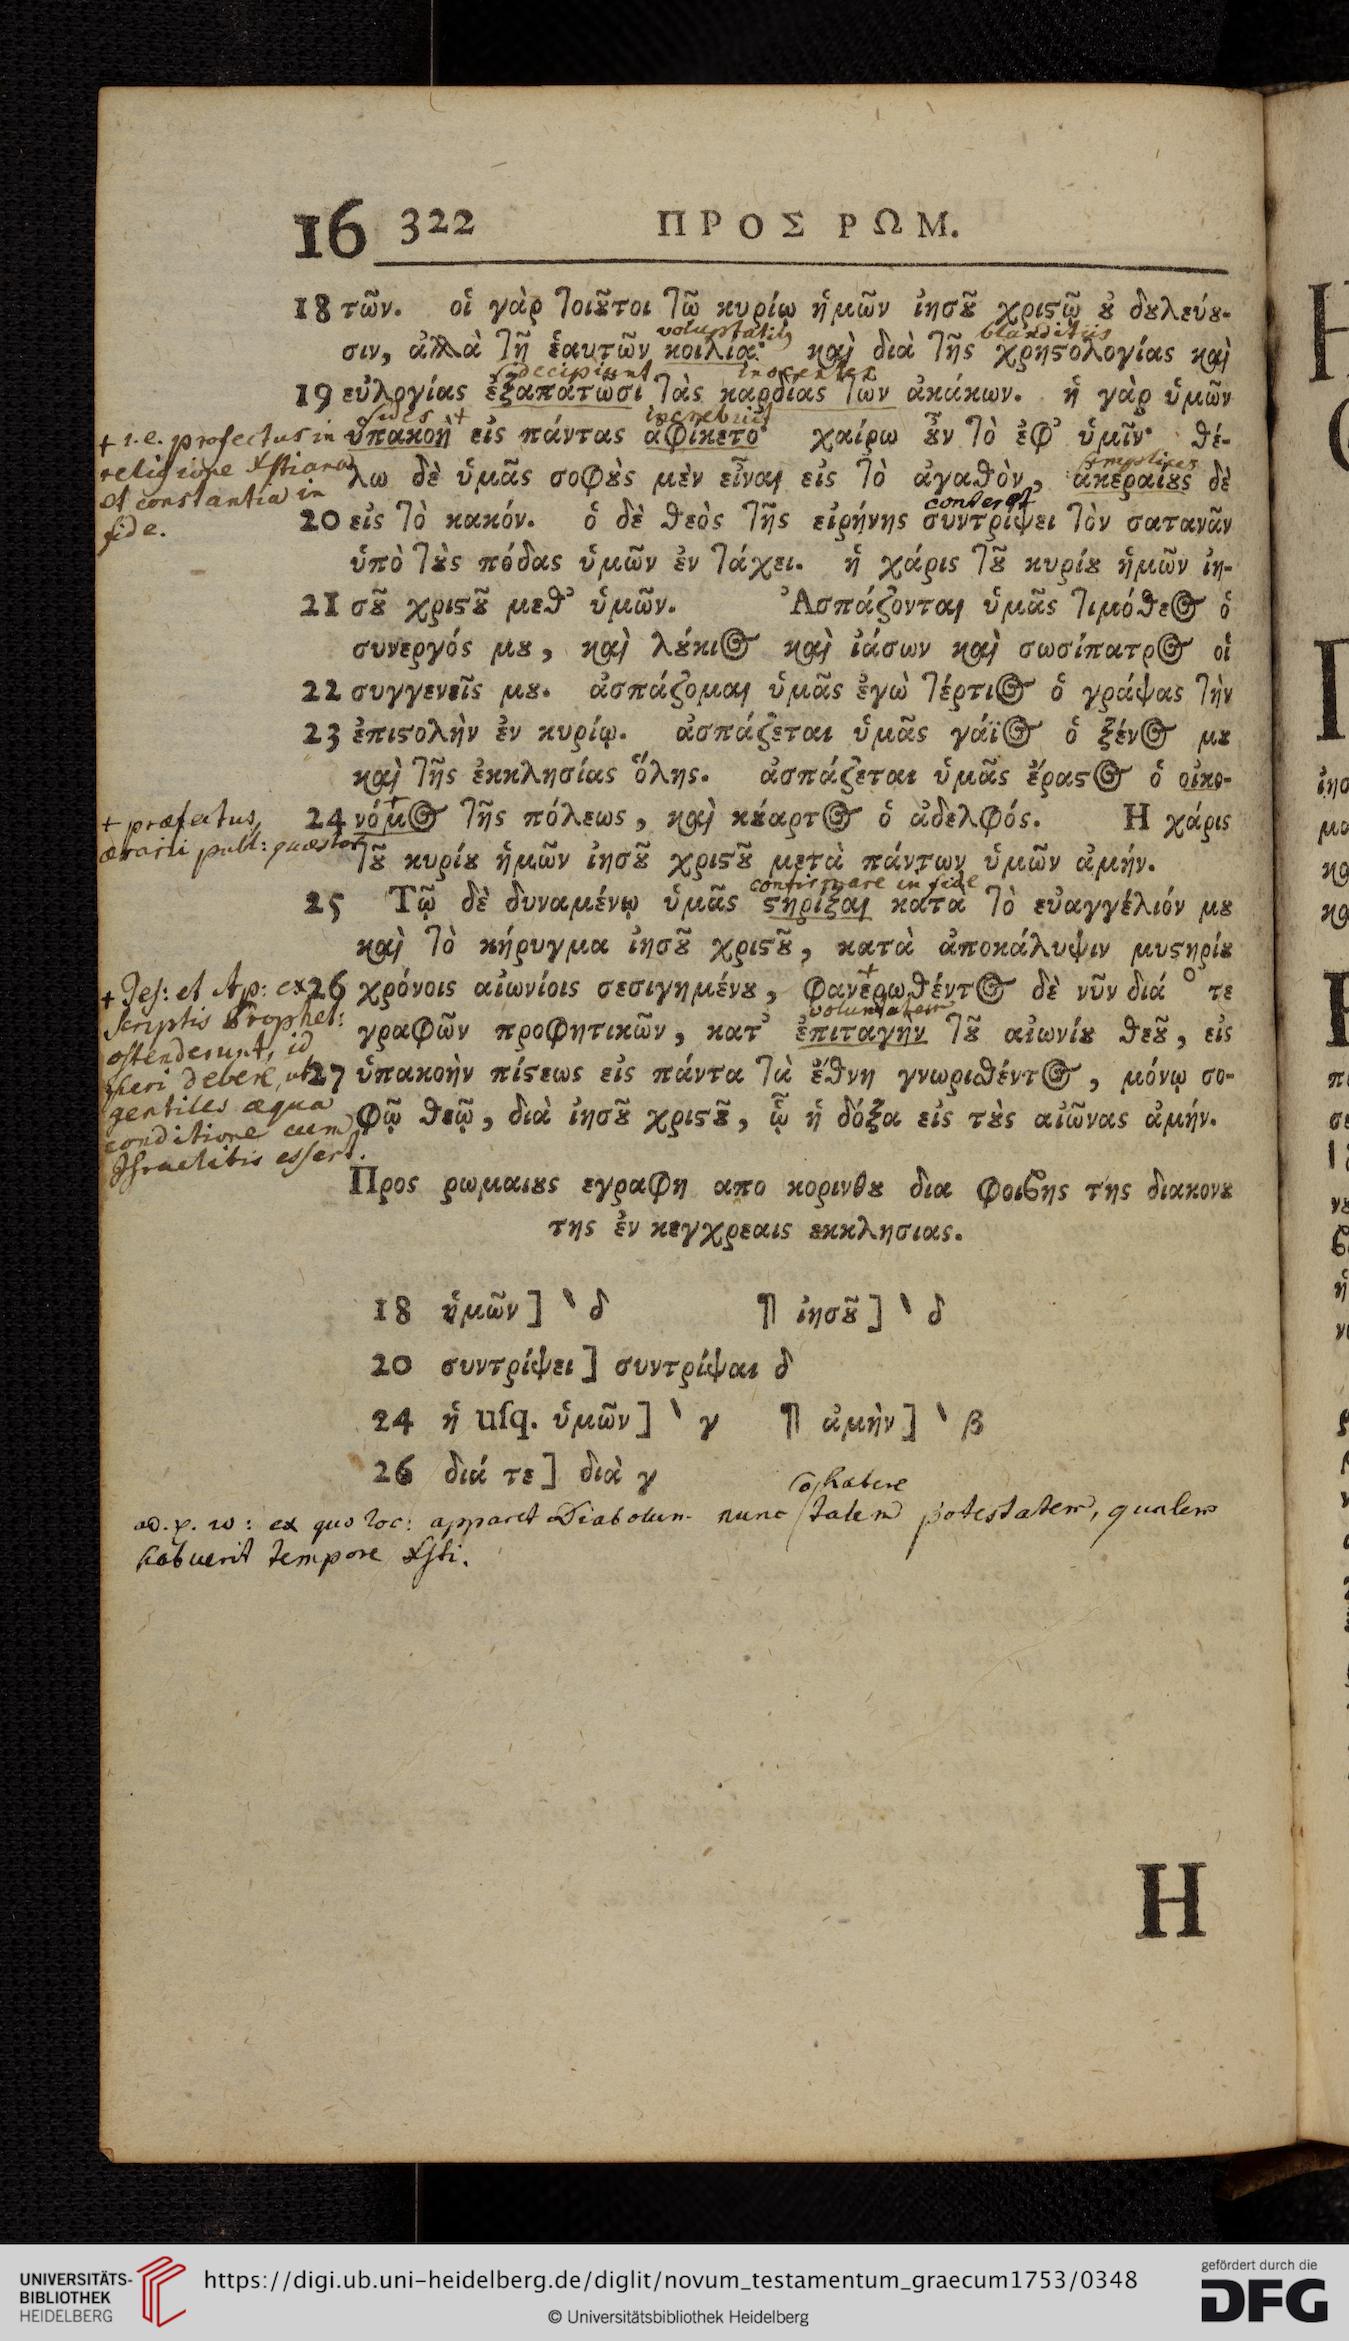 16 322 ΠΡΟΣ ΡΩΜ.
18 τῶν. οἱ γὰρ τοιȣ͂τοι τῷ κυρίῳ ἡμῶν ἰησȣ͂ χριςῷ ȣ̓ δȣλεύȣ-
voluptatis blanditiis
σιν, ἀλλὰ τῇ ἑαυτῶν κοιλίᾳ· καὶ διὰ τῆς χρηςολογίας καὶ
decipiunt innocentes
19 εὐλογίας ἐξαπατῶσι τὰς καρδίας τῶν ἀκάκων. ἡ γὰρ ὑμῶν
fides + increbuit
+ i. e. profectus in ὑπακοὴ εἰς πάντας ἀφίκετο· χαίρω ȣ̓͂ν τὸ ἐφ' ὑμῖν· θέ-
simplices
religione Xstiana λω δὲ ὑμᾶς σοφȣ̀ς μὲν εἶναι εἰς τὸ ἀγαθὸν, ἀκεραίȣς δὲ
et constantia in conteret
fide. 20 εἰς τὸ κακόν. ὁ δὲ θεὸς τῆς εἰρήνης συντρίψει τὸν σατανᾶν
ὑπὸ τȣ̀ς πόδας ὑμῶν ἐν τάχει. ἡ χάρις τȣ͂ κυρίȣ ἡμῶν ἰη-
21 σȣ͂ χριςȣ͂ μεθ' ὑμῶν. Ἀσπάζονται ὑμᾶς τιμόθεος ὁ
συνεργός μȣ, καὶ λȣ́κιος καὶ ἰάσων καὶ σωσίπατρος οἱ
22 συγγενεῖς μȣ. ἀσπάζομαι ὑμᾶς ἐγὼ τέρτιος ὁ γράψας τὴν
23 ἐπιςολὴν ἐν κυρίῳ. ἀσπάζεται ὑμᾶς γάϊος ὁ ξένος μȣ
καὶ τῆς ἐκκλησίας ὅλης. ἀσπάζεται ὑμᾶς ἔραςος ὁ οἰκο-
+ præfectus, 24 νόμος τῆς πόλεως, καὶ κȣ́αρτος ὁ ἀδελφός. Η χάρις
ærarii publ: quæstor τȣ͂ κυρίȣ ἡμῶν ἰησȣ͂ χριςȣ͂ μετὰ πάντων ὑμῶν ἀμήν.
confirmare in fide
25 Τῷ δὲ δυναμένῳ ὑμᾶς ςηρίξαι κατὰ τὸ εὐαγγέλιόν μȣ
καὶ τὸ κήρυγμα ἰησȣ͂ χριςȣ͂, κατὰ ἀποκάλυψιν μυςηρίȣ
+ Jes: et Ap: ex 26 χρόνοις αἰωνίοις σεσιγημένȣ, φανερωθέντος δὲ νῦν διά ° τε
voluntatem
scriptis Prophet: γραφῶν προφητικῶν, κατ' ἐπιταγὴν τȣ͂ αἰωνίȣ θεȣ͂, εἰς
ostenderunt, id
fieri debere, ut 27 ὑπακοὴν πίςεως εἰς πάντα τὰ ἔθνη γνωριθέντος, μόνῳ σο-
gentiles æqua
conditione cum φῷ θεῷ, διὰ ἰησȣ͂ χριςȣ͂, ᾧ ἡ δόξα εἰς τȣ̀ς αἰῶνας ἀμήν.
Israelitis essent.
Προς ρωμαιȣς εγραφη απο κορινθȣ δια φοιϐης της διακονȣ
της ἐν κεγχρεαις εκκλησιας.
18 ἡμῶν] ‵ δ ¶ ἰησȣ͂] ‵ δ
20 συντρίψει] συντρίψαι δ
24 ἡ uſq. ὑμῶν] ‵ γ ¶ ἀμὴν] ‵ β
26 διά τε] διὰ γ
habere
ex quo loc: apparet Diabolum nunc talem potestatem, qualem
habuerit tempore Xsti.
Η
UNIVERSITÄTS-
BIBLIOTHEK
HEIDELBERG
https://digi.ub.uni-heidelberg.de/diglit/novum_testamentum_graecum1753/0348
© Universitätsbibliothek Heidelberg
gefördert durch die
DFG